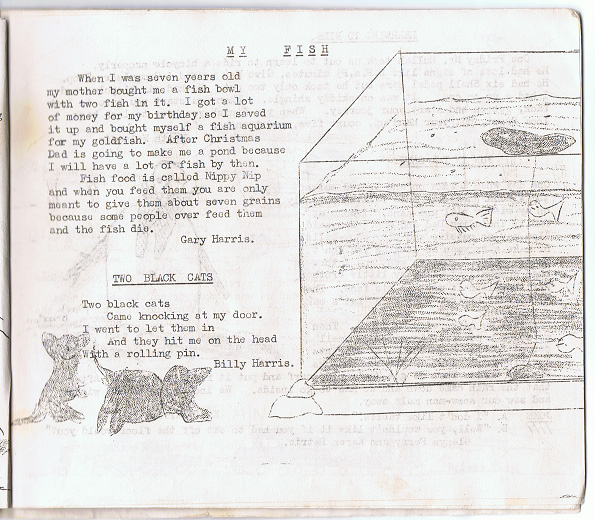 MY FISH
When I was seven years old
my mother bought me a fish bowl
with two fish in it. I got a lot
of money for my birthday so I saved
it up and bought myself a fish aquarium
for my goldfish. After Christmas
Dad is going to make me a pond because
I will have a lot of fish by then.
Fish food is called Nippy Nip
and when you feed them you are only
meant to give them about seven grains
because some people over feed them
and the fish die.
Gary Harris.
TWO BLACK CATS
Two black cats
Came knocking at my door.
I went to let them in
And they hit me on the head
With a rolling pin.
Billy Harris.